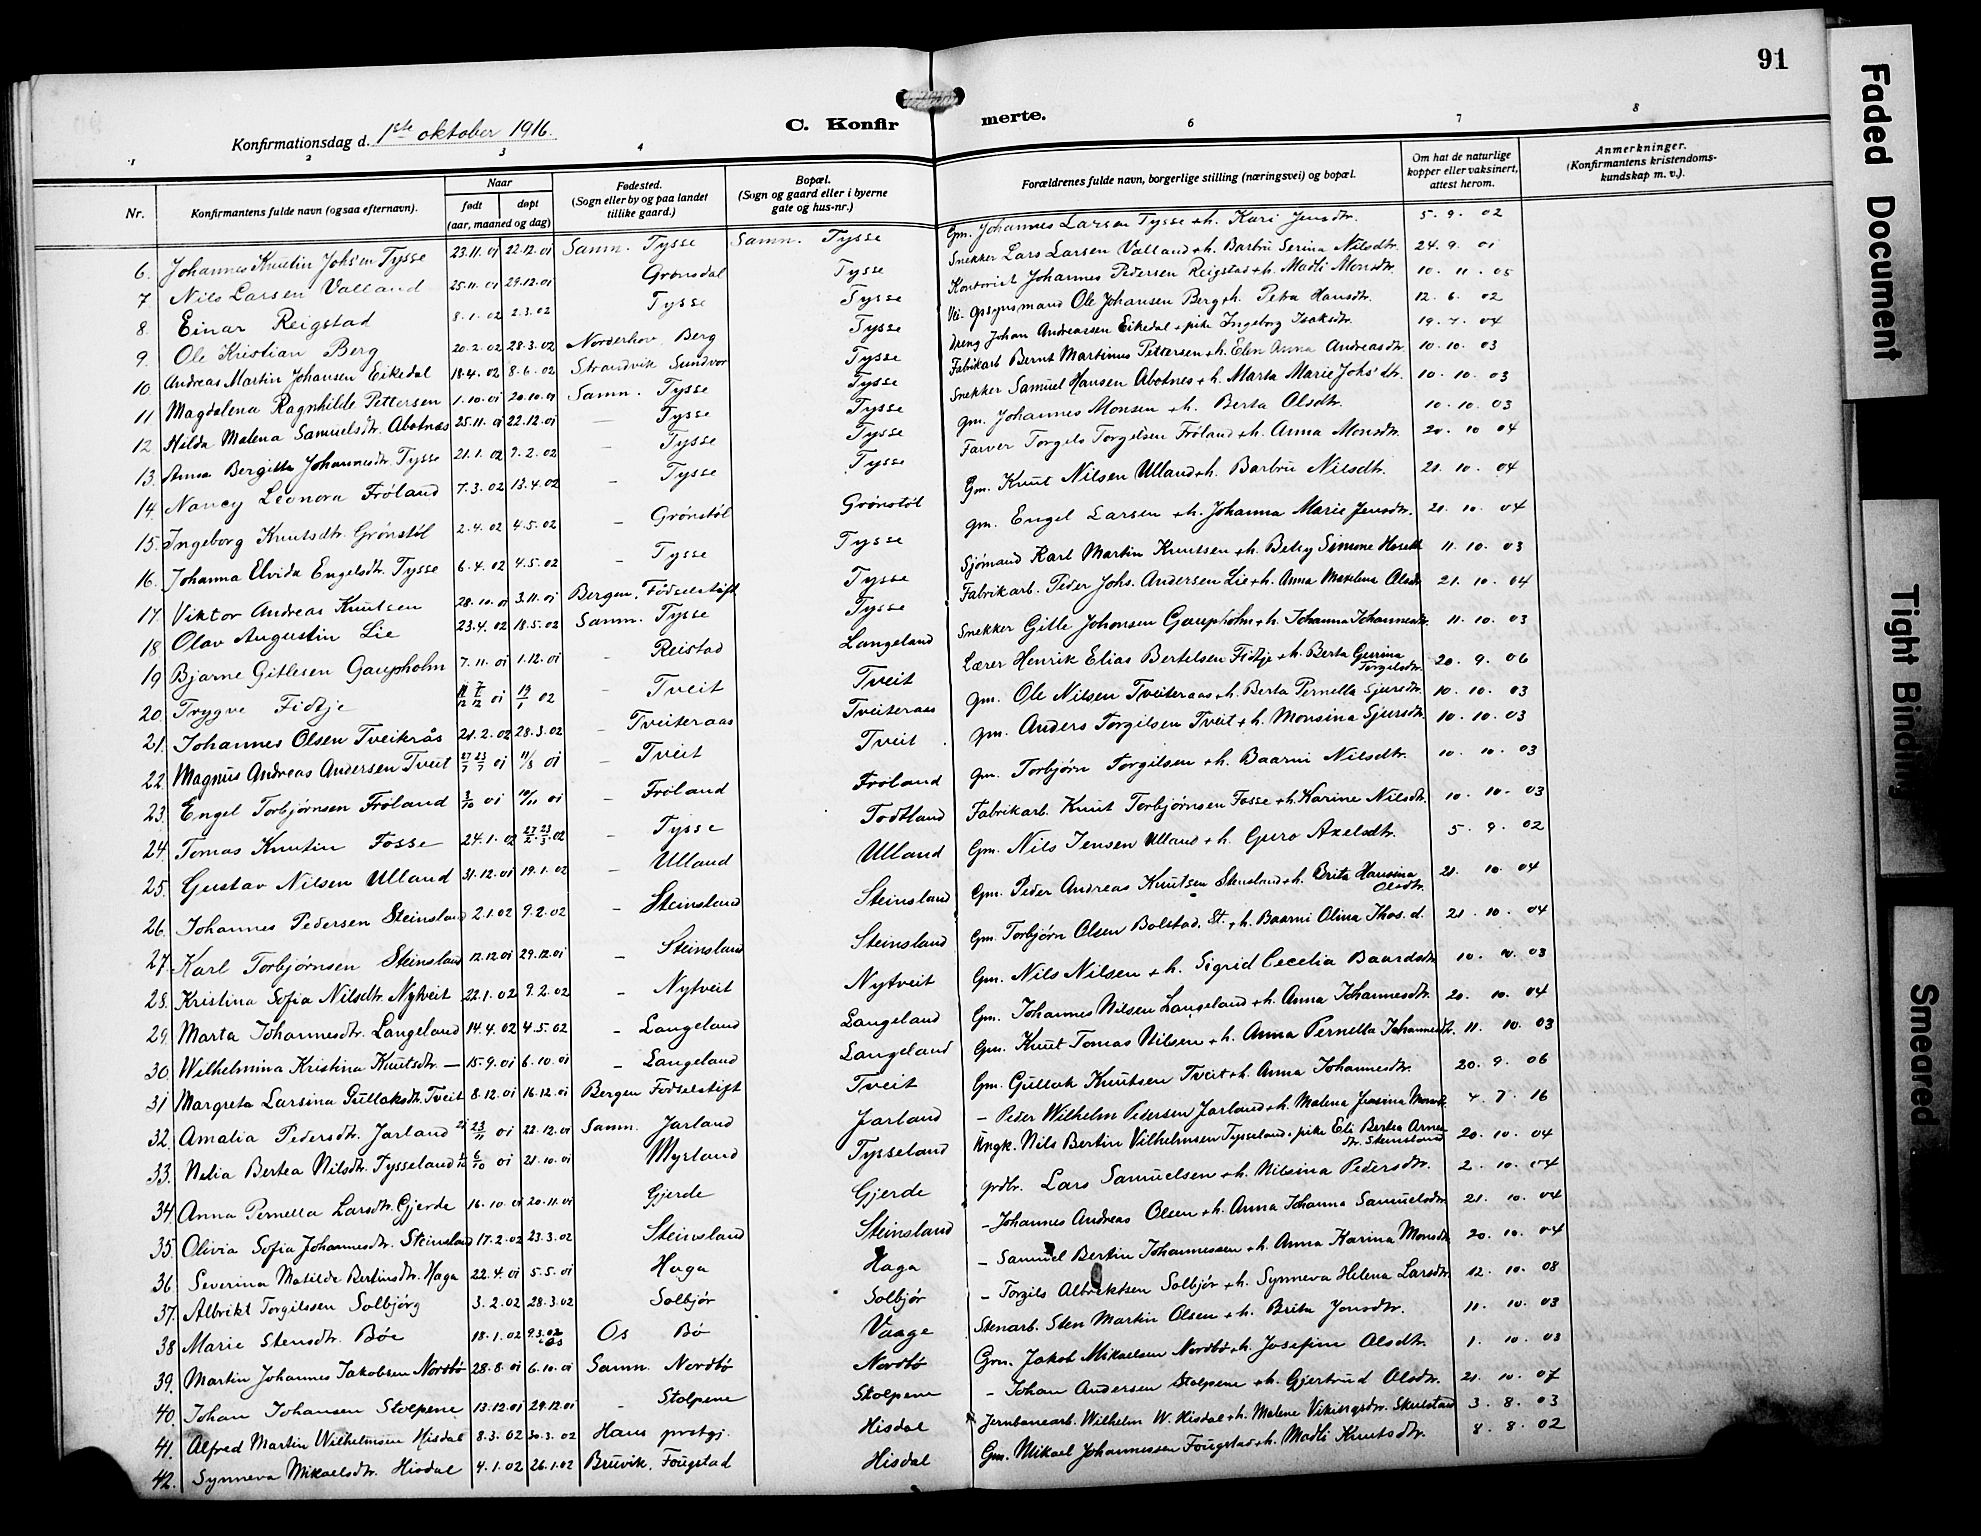 91
Konfirmationsdag d. 1ste oktober 1916.
C. Konfir merte.
1 2 3 4 6 7 8
Nr.
Konfirmantens fulde navn (ogsaa efternavn).
Naar
født døpt
(aar, maaned og dag)
Fødested.
(Sogn eller by og paa landet
tillike gaard.)
Bopæl.
(Sogn og gaard eller i byerne
gate og hus-nr.)
Forældrenes fulde navn, borgerlige stilling (næringsvei) og bopæl.
Om hat de naturlige
kopper eller vaksinert,
attest herom.
Anmerkninger.
(Konfirmantens kristendoms-
kundskap m. v.).
6. Johannes Knutin Johs'en Tysse 23.11.01 22.12.01 Samn. Tysse Samn. Tysse Gm. Johannes Larsen Tysse + h. Kari Jensdtr. 5. 9. 02
7 Nils Larsen Valland 25.11.01 29.12.01 Grønsdal Tysse Snekker Lars Larsen Valland + h. Barbru Serina Nilsdtr. 24. 9. 01
8. Einar Reigstad 8.1.02 2.3.02 Tysse Tysse Kontorist Johannes Pedersen Reigstad + h. Madli Monsdtr. 10. 11. 05
9. Ole Kristian Berg 20.2.02 28.3.02 Norderhov. Berg Tysse Ole Johansen Berg + h. Petra Hansdtr. 12. 6. 02
10 Andreas Martin Johansen Eikedal 18.4.02 8.6.02 Strandvik Sundvor Tysse Dreng Johan Andreassen Eikedal + pike Ingeborg Isaksdtr. 19. 7. 04
11 Magdalena Ragnhilde Pettersen 1.10.01 20.10.01 Samn. Tysse Tysse Fabrikarb. Bernt Martinus Pettersen + h. Elen Anna Andreasdtr. 10. 10. 03
12 Hilda Malena Samuelsdtr. Abotnæs 25.11.01 22.12.01 – Tysse Tysse Snekker Samuel Hansen Abotnes + h. Marta Marie Johs'dtr. 10. 10. 03
13. Anna Bergitta Johannesdtr. Tysse 21.1.02 9.2.02 – Tysse Tysse Gm. Johannes Monsen + h. Berta Olsdtr. 10. 10. 03
14. Nancy Leonora Frøland 7.3.02 13.4.02 – Tysse Tysse Farver Torgels Torgelsen Frøland + h. Anna Monsdtr. 20. 10 04
15. Ingeborg Knutsdtr. Grønstøl 2.4.02 4.5.02 – Grønstøl Grønstøl Gm. Knut Nilsen Ulland + h. Barbru Nilsdtr. 21. 10. 04
16. Johanna Elvida Engelsdtr. Tysse 6.4.02 4.5.02 – Tysse Tysse Gm. Engel Larsen + h. Johanna Marie Jensdtr. 21. 10. 04
17. Viktor Andreas Knutsen 28.10.01 3.11.01 Bergen. Fødselsstift. Tysse Sjømand Karl Martin Knutsen + h. Betsy Simone 11. 10. 03
18 Olav Augustin Lie 23.4.02 18.5.02 Samn. Tysse Tysse Fabrikarb. Peder Johs. Andersen Lie + h. Anna Malena Olsdtr. 21. 10. 04
19 Bjarne Gitlesen Gaupholm 7.11.01 1.12.01 – Reistad Langeland Snekker Gitle Johansen Gaupholm + h. Johanna Johannesdtr. 11. 10. 03
20. Trygve Fidtje 01 19/1 02 – Tveit Tveit Lærer Henrik Elias Bertelsen Fidtje + h. Berta Gurina Torgilsdtr. 20. 9. 06
21. Johannes Olsen Tveiterås 21.2.02 28.3.02 – Tveiteraas Tveiteraas Gm. Ole Nilsen Tveiteraas + h. Berta Pernella Sjursdtr. 10. 10. 03
22. Magnus Andreas Andersen Tveit 27/7 23/7 01 11/8 01 – Tveit Tveit Gm. Anders Torgilsen Tveit + h. Monsina Sjursdtr. 10. 10. 03
23. Engel Torbjørnsen Frøland 3/10 01 10/11 01 – Frøland Frøland Gm. Torbjørn Torgilsen + h. Baarni Nilsdtr. 10. 10. 03
24. Tomas Knutin Fosse 24.1.02 27/2 23/3 02 – Tysse Todtland Fabrikarb. Knut Torbjørnsen Fosse + h. Karine Nilsdtr. 10. 10. 03
25. Gustav Nilsen Ulland 31.12.01 19.1.02 – Ulland Ulland Gm. Nils Jensen Ulland + h. Guro Axelsdtr. 5. 9. 02
26. Johannes Pedersen Steinsland 2.1.02 9.2.02 – Steinsland Steinsland Gm. Peder Andreas Knutsen Stensland + h. Brita Hansina Olsdtr. 21. 10. 04
27. Karl Torbjørnsen Steinsland 12.12.01 29.12.01 – Steinsland Steinsland Gm. Torbjørn Olsen Bolstad, St. + h. Baarni Olina Thos. d. 21. 10. 04
28. Kristina Sofia Nilsdtr. Nytveit 22.1.02 9.2.02 – Nytveit Nytveit Gm. Nils Nilsen + h. Sigrid Cecelia Baardsdtr. 10. 10. 03
29. Marta Johannesdtr. Langeland 14.4.02 4.5.02 – Langeland Langeland Gm. Johannes Nilsen Langeland + h. Anna Johannesdtr. 20. 10. 04
30. Wilhelmina Kristina Knutsdtr. — 15.9.01 6.10.01 – Langeland Langeland Gm. Knut Tomas Nilsen + h. Anna Pernella Johannesdtr. 11. 10. 03
31 Margreta Larsina Gullaksdtr. Tveit 8.12.01 16.12.01 Bergen Fødselsstift Tveit Gm. Gullak Knutsen Tveit + h. Anna Johannesdtr. 20. 9. 06
32. Amalia Pedersdtr. Jarland 23/11 01 22.12.01 Samn. Jarland Jarland – Peder Wilhelm Pedersen Jarland + h. Malena Jensina Monsd. 4. 7. 16
33. Nilia Bertea Nilsdtr. Tysseland 6/10 01 21.10.01 Myrland Tysseland Ungk. Nils Bertin Vilhelmsen Tysseland. pike Eli Bertea Arnedtr. Steinsland 20. 10. 04
34. Anna Pernella Larsdtr. Gjerde 16.10.01 20.11.01 Gjerde Gjerde Grdbr. Lars Samuelsen + h. Nilsina Pedersdtr. 2. 10. 04
35. Olivia Sofia Johannesdtr. Steinsland 17.2.02 23.3.02 Steinsland Steinsland – Johannes Andreas Olsen + h. Anna Johanna Samuelsdtr. 21. 10. 04
36 Severina Matilde Bertinsdtr. Haga 22.4.01 5.5.01 Haga Haga – Samuel Bertin Johannessen + h. Anna Karina Monsdtr. 20. 10. 04
37. Albrikt Torgilssen Solbjørg 3.2.02 28.3.02 Solbjør Solbjør – Torgils Albriktsen Solbjør + h. Synneva Helena Larsdtr. 12. 10. 08
38 Marie Stensdtr. Bøe 18.1.02 9.3.02 i Os Os Bø Vaage Stenarb. Sten Martin Olsen + h. Brita Jonsdtr. 11. 10. 03
39. Martin Johannes Jakobsen Nordbø 28.8.01 6.10.01 Samn. Nordbø Nordbø Grm. Jakob Mikaelsen Nordbø + h. Josefine Olsdtr. 1. 10. 03
40. Johan Johansen Stolpene 13.12.01 29.12.01 – Stolpene Stolpene – Johan Andersen Stolpene + h. Gjertrud Olsdtr. 21. 10. 07
41. Alfred Martin Wilhelmsen Hisdal 8.3.02 30.3.02 Haus prstgj. Hisdal Jernbanearb. Wilhelm W. Hisdal + h. Malene Vikingsdtr. Skulstad 3. 8. 03
42. Synneva Mikaelsdtr. Hisdal 4.1.02 26.1.02 Bruvik. Fougstad Hisdal Gm. Mikael Johannessen Fougstad + h. Madli Knutsdtr. 8. 8. 02
Faded Document
Tight Binding
Smeared